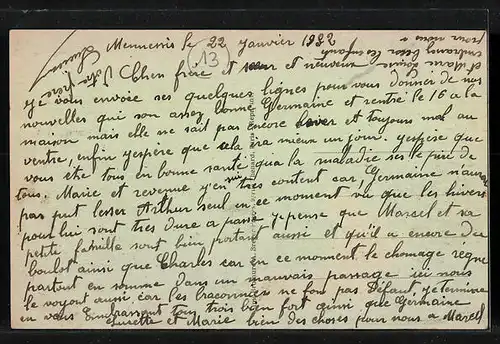 Mennessis le 22 janvier 1932
(13)
Cher frère et sœur et neveux
Je vous envoie ses quelques lignes pour vous donner de nos
nouvelles qui son assez bonne Germaine et rentré le 16 a la
maison mais elle ne sait pas encore lever et toujours mal au
ventre, enfin j'espère que cela ira mieux un jour. j'espère que
vous ete tous en bonne santé qua la maladie ses le pire de
tous. Marie et revenue y'en très content car, Germaine n'aurai
pas put lesser Arthur seul en ce moment vu que les hivers
pour lui sont très dure a passé je pense que Marcel et sa
petite famille sont bien portant aussi et qu'il a encore du
boulot ainsi que Charles car en ce moment le chomage règne
partout en somme dans un mauvais passage ici nous
le voyont aussi car les tracommer ne fon pas Défaut, je termine
en vous Embrassant tous trois bien fort ainsi que Germaine
Laurette et Marie bien des choses pour nous a Marcel
pour nous